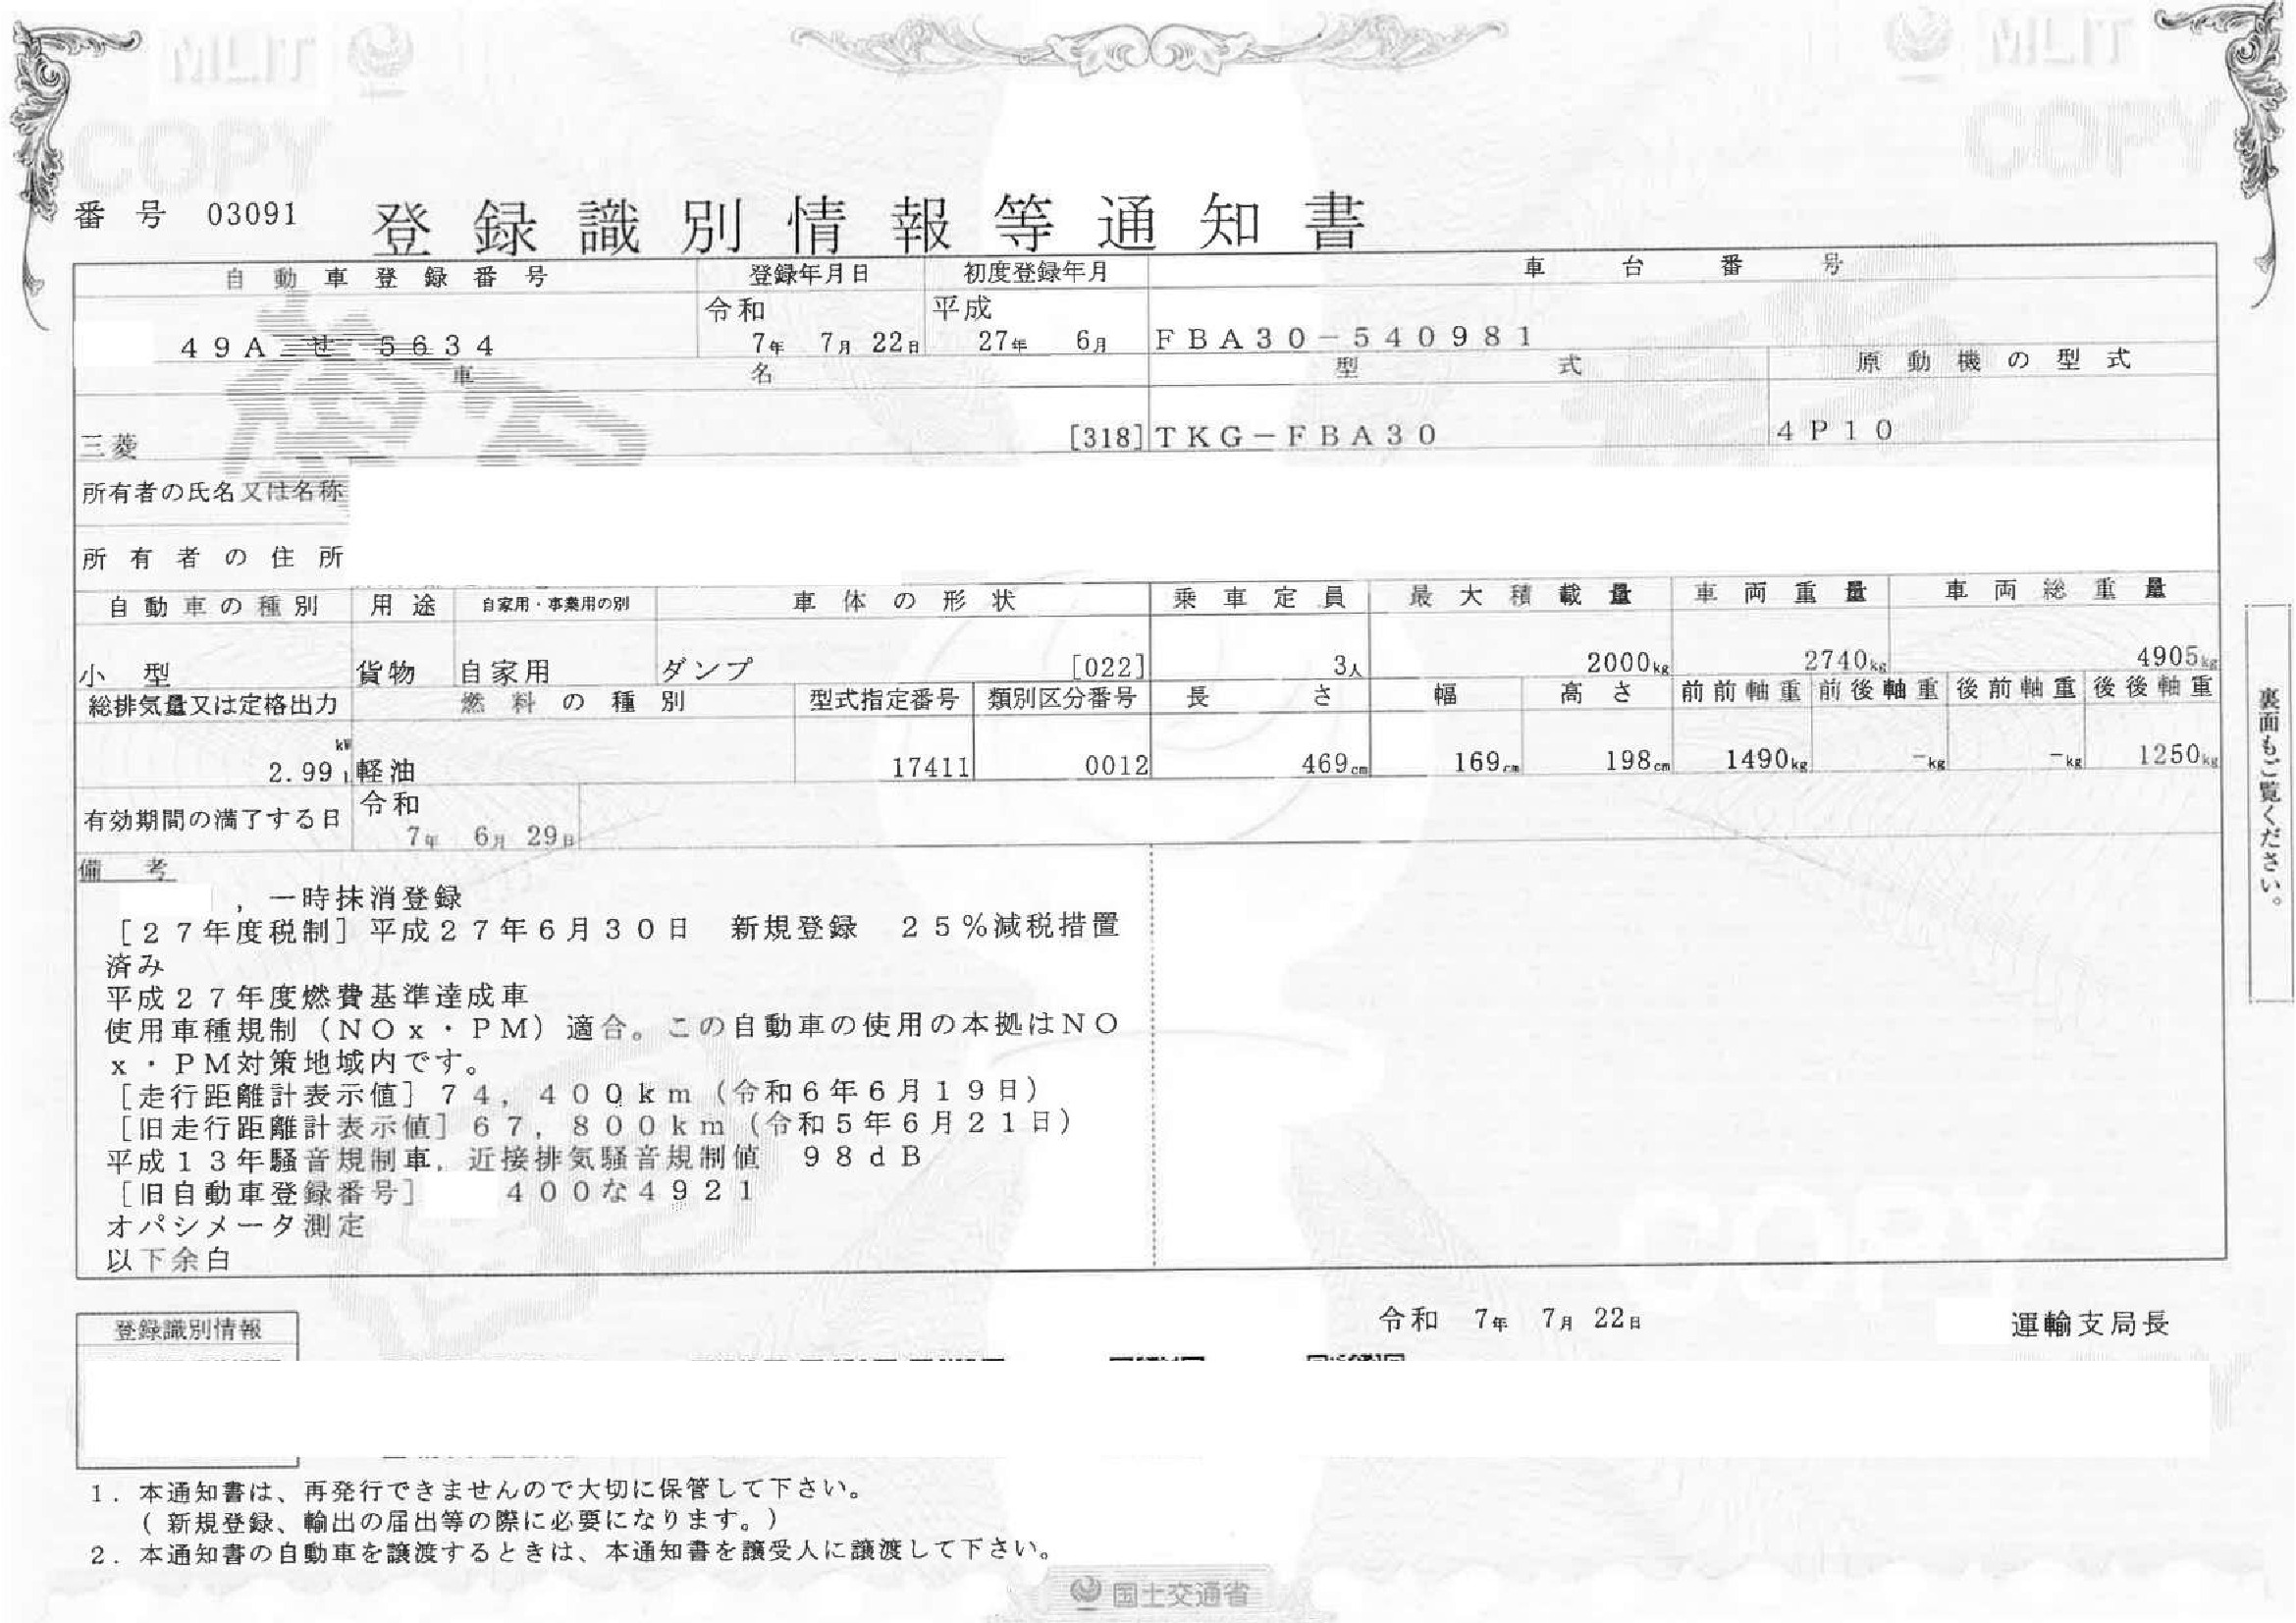 MLIT
MLIT
COPY
COPY
番号 03091
登録識別情報等通知書
自動車登録番号 登録年月日 初度登録年月 車台番号
令和 平成
49A せ 5634 7年 7月 22日 27年 6月 FBA30-540981
車名 型式 原動機の型式
三菱 [318] TKG-FBA30 4P10
所有者の氏名又は名称
所有者の住所
自動車の種別 用途 自家用・事業用の別 車体の形状 乗車定員 最大積載量 車両重量 車両総重量
小型 貨物 自家用 ダンプ [022] 3人 2000kg 2740kg 4905kg
総排気量又は定格出力 燃料の種別 型式指定番号 類別区分番号 長さ 幅 高さ 前前軸重 前後軸重 後前軸重 後後軸重
kW
2.99 l 軽油 17411 0012 469cm 169cm 198cm 1490kg -kg -kg 1250kg
有効期間の満了する日 令和
7年 6月 29日
備考
,一時抹消登録
[27年度税制]平成27年6月30日 新規登録 25%減税措置
済み
平成27年度燃費基準達成車
使用車種規制(NOx・PM)適合。この自動車の使用の本拠はNO
x・PM対策地域内です。
[走行距離計表示値]74,400km(令和6年6月19日)
[旧走行距離計表示値]67,800km(令和5年6月21日)
平成13年騒音規制車,近接排気騒音規制値 98dB
[旧自動車登録番号] 400な4921
オパシメータ測定
以下余白
裏面もご覧ください。
COPY
令和 7年 7月 22日 運輸支局長
登録識別情報
1.本通知書は、再発行できませんので大切に保管して下さい。
(新規登録、輸出の届出等の際に必要になります。)
2.本通知書の自動車を譲渡するときは、本通知書を譲受人に譲渡して下さい。
国土交通省